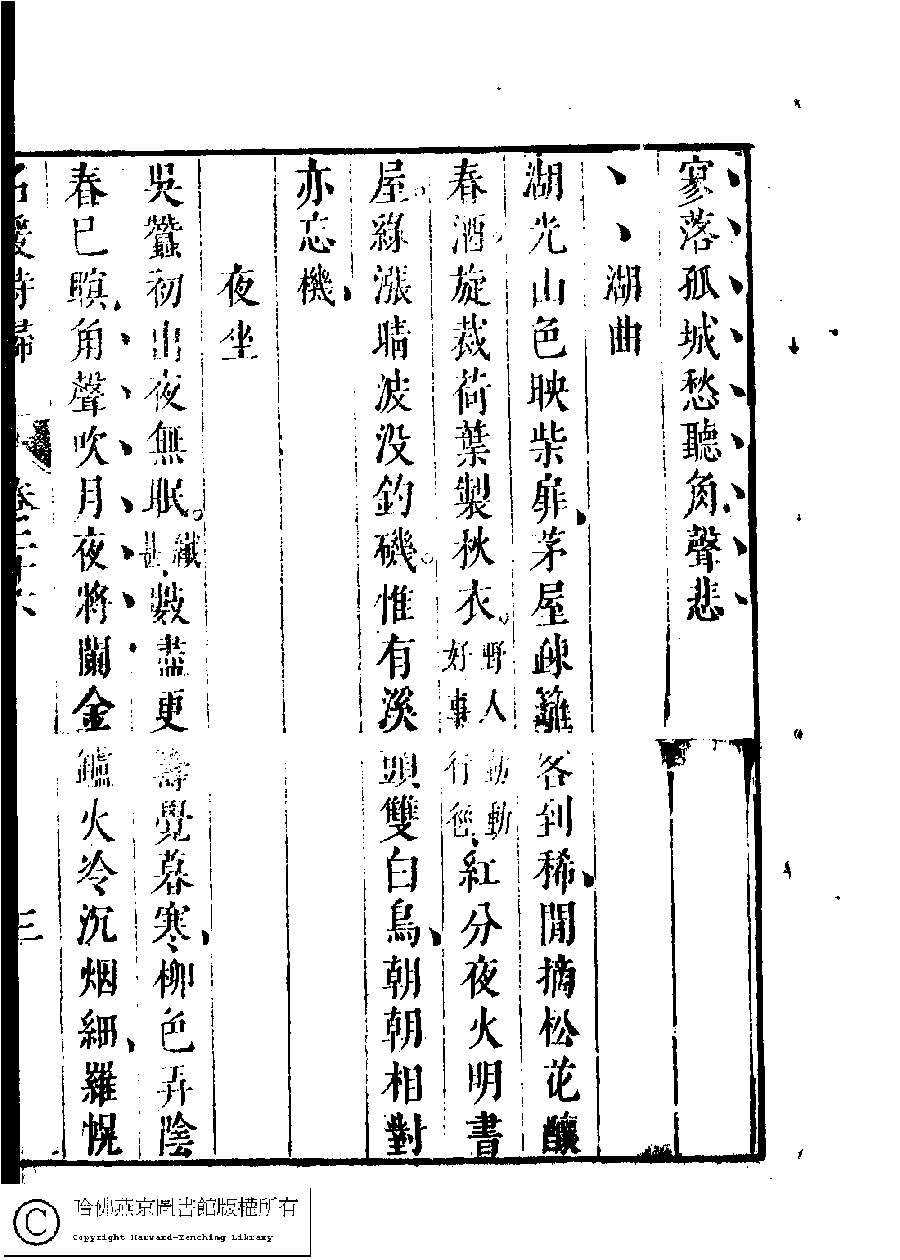 寥落孤城愁聽角聲悲
湖曲
湖光山色映柴扉茅屋疎籬客到稀閒摘松花釀
春酒旋裁荷葉製秋衣野人好事動動行徑紅分夜火明書
屋綠漲晴波没釣磯惟有溪頭雙白鳥朝朝相對
亦忘機
夜坐
吳蠶初出夜無眠纖甚數盡更籌覺暮寒柳色弄陰
春已暝角聲吹月夜將闌金鑪火冷沉烟細羅幌
名媛詩歸 卷二十六 三
哈佛燕京圖書館版權所有
Copyright Harvard-Yenching Library